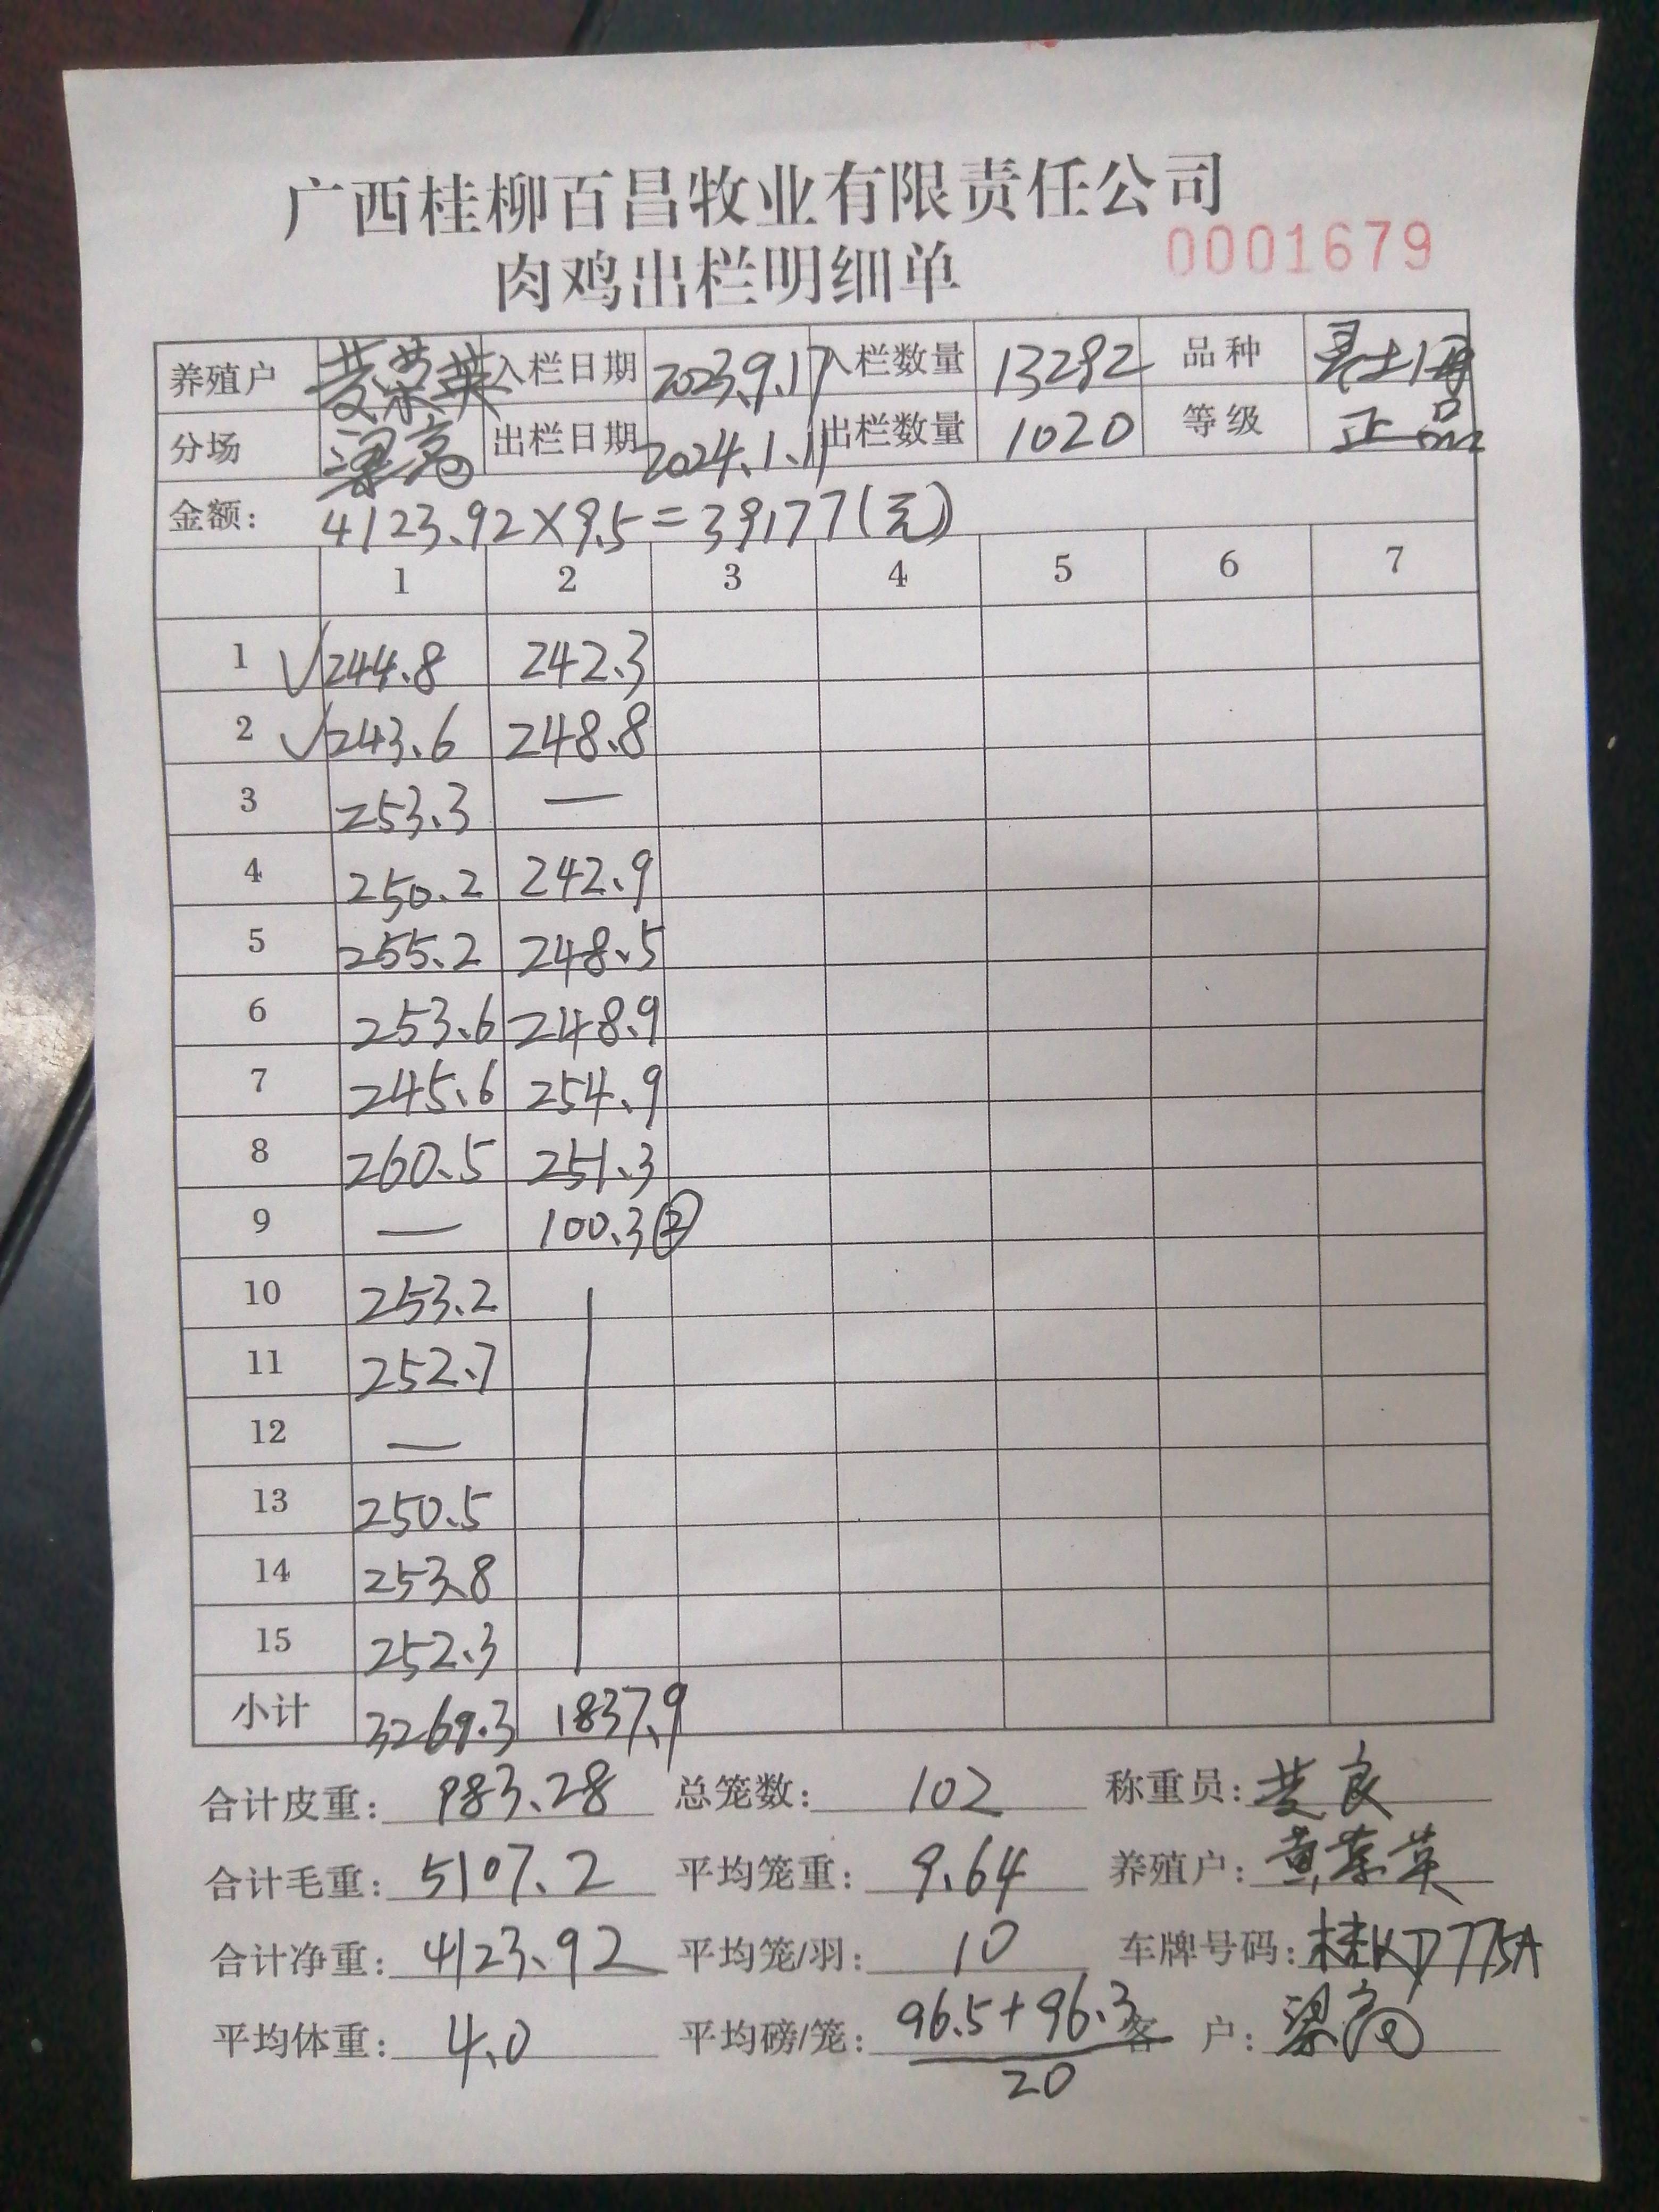 广西桂柳百昌牧业有限责任公司
肉鸡出栏明细单 0001679
养殖户 黄荣英 入栏日期 2023.9.17 入栏数量 13292 品种
分场 梁高 出栏日期 2024.1.11 出栏数量 1020 等级 正品
金额: 4123.92×9.5=39177(元)
1 2 3 4 5 6 7
1 √244.8 242.3
2 √243.6 248.8
3 253.3 —
4 250.2 242.9
5 255.2 248.5
6 253.6 248.9
7 245.6 254.9
8 260.5 251.3
9 — 100.3②
10 253.2
11 252.7
12 —
13 250.5
14 253.8
15 252.3
小计 3269.3 1837.9
合计皮重: 983.28 总笼数: 102 称重员: 黄良
合计毛重: 5107.2 平均笼重: 9.64 养殖户: 黄荣英
合计净重: 4123.92 平均笼/羽: 10 车牌号码: 桂KD775A
平均体重: 4.0 平均磅/笼: 96.5+96.3 客 户: 梁高
20